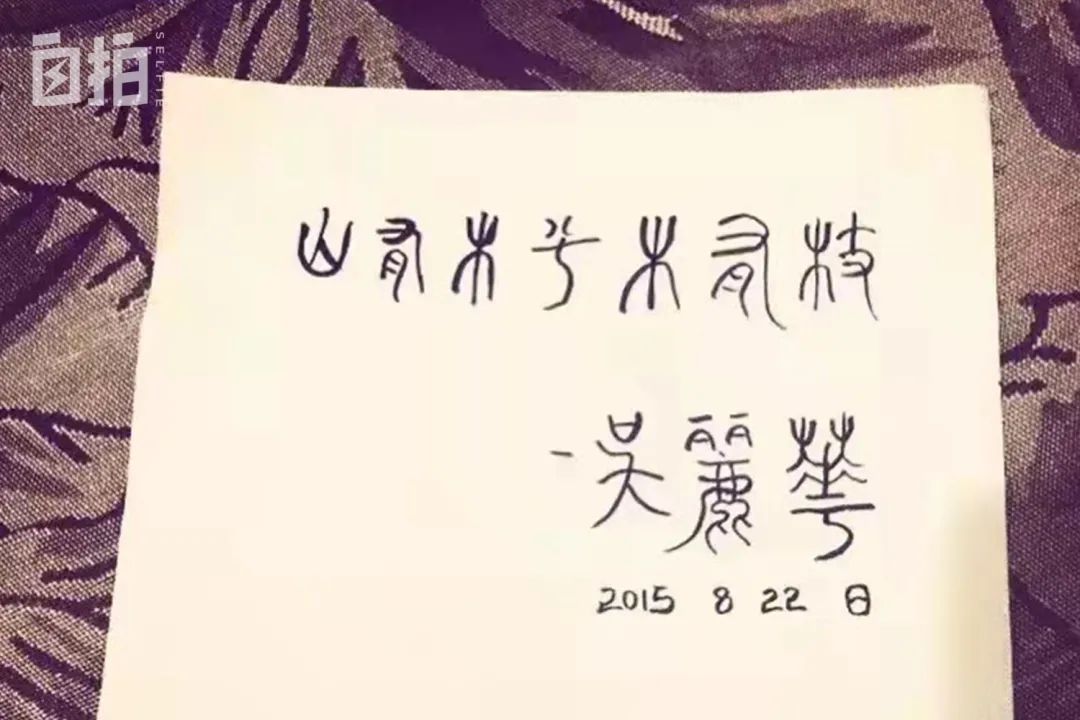 自拍
SELFIE
山有木兮木有枝
-吳麗華
2015 8 22 日